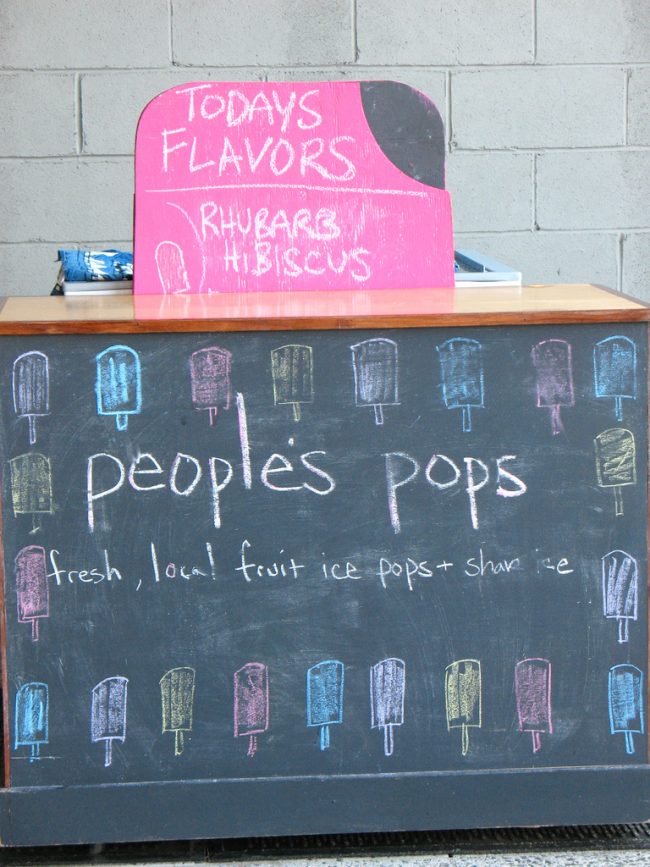 TODAYS
FLAVORS
RHUBARB
HIBISCUS
people's pops
fresh, local fruit ice pops +